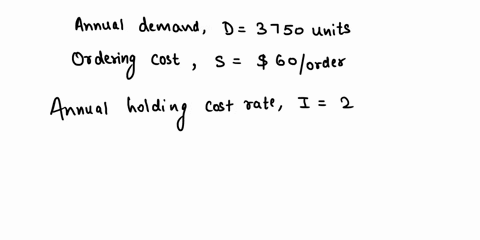 Annual demand, D = 3750 units
Ordering cost, S = $60/order
Annual holding cost rate, I = 2